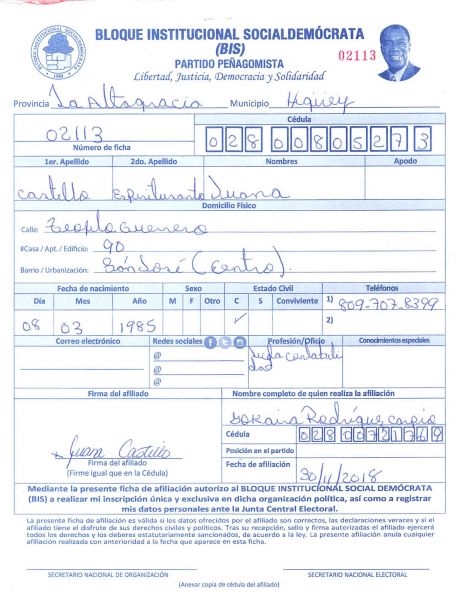 BLOQUE INSTITUCIONAL SOCIALDEMÓCRATA
(BIS)
02113
PARTIDO PEÑAGOMISTA
Libertad, Justicia, Democracia y Solidaridad
Provincia La Altagracia Municipio Higüey
02113
Número de ficha
Cédula
02800805273
1er. Apellido 2do. Apellido Nombres Apodo
Castillo Espiritusanto Juana
Domicilio Físico
Calle: Teofilo Guerrero
#Casa / Apt. / Edificio: 90
Barrio / Urbanización: San José (Centro).
Fecha de nacimiento Sexo Estado Civil Teléfonos
Día Mes Año M F Otro C S Conviviente 1) 809-707-8399
08 03 1985 ✓ 2)
Correo electrónico Redes sociales Profesión/Oficio Conocimientos especiales
@
@
@
Firma del afiliado Nombre completo de quien realiza la afiliación
Rodríguez
Cédula
Posición en el partido
Fecha de afiliación 30/11/2018
Juana Castillo
Firma del afiliado
(Firme igual que en la Cédula)
Mediante la presente ficha de afiliación autorizo al BLOQUE INSTITUCIONAL SOCIAL DEMÓCRATA
(BIS) a realizar mi inscripción única y exclusiva en dicha organización política, así como a registrar
mis datos personales ante la Junta Central Electoral.
La presente ficha de afiliación es válida si los datos ofrecidos por el afiliado son correctos, las declaraciones veraces y si el
afiliado tiene el disfrute de sus derechos civiles y políticos. Tras su recepción, sello y firma autorizados el afiliado ejercerá
todos los derechos y los deberes estatutariamente sancionados, de acuerdo a la ley. La presente afiliación anula cualquier
afiliación realizada con anterioridad a la fecha que aparece en esta ficha.
SECRETARIO NACIONAL DE ORGANIZACIÓN SECRETARIO NACIONAL ELECTORAL
(Anexar copia de cédula del afiliado)